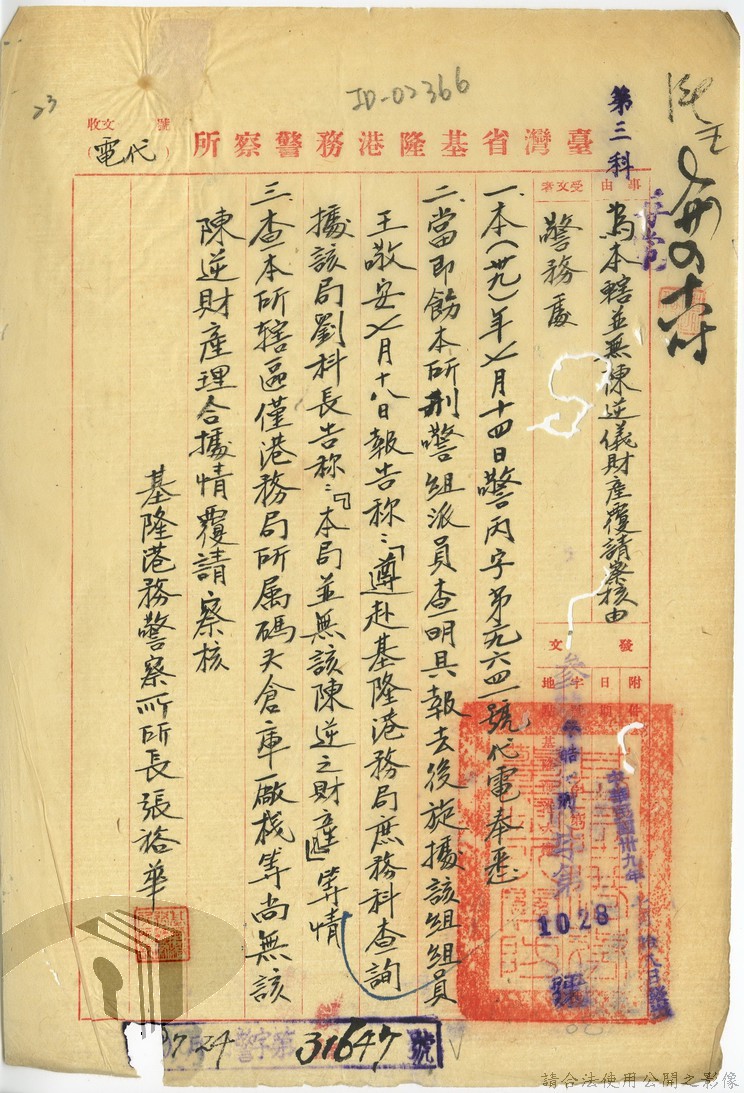 ID-02366
23
第三科
臺灣省基隆港務警察所
收文 號
(代電)
事由
為本轄並無陳逆儀財產覆請察核由
受文者
警務處
發文
附件
日期
字
地
中華民國卅九年
字第
1028
號
一、本(卅九)年七月十四日警丙字第一九六四一號代電奉悉
二、當即飭本所刑警組派員查明具報去後旋據該組組員
王敬安七月十八日報告称:「遵赴基隆港務局庶務科查詢
據該局劉科長告称:『本局並無該陳逆之財產』」等情
三、查本所轄區僅港務局所属碼头倉庫廠棧等尚無該
陳逆財產理合據情覆請察核
基隆港務警察所所長張裕華
37724
警字第
31647
號
請合法使用公開之影像